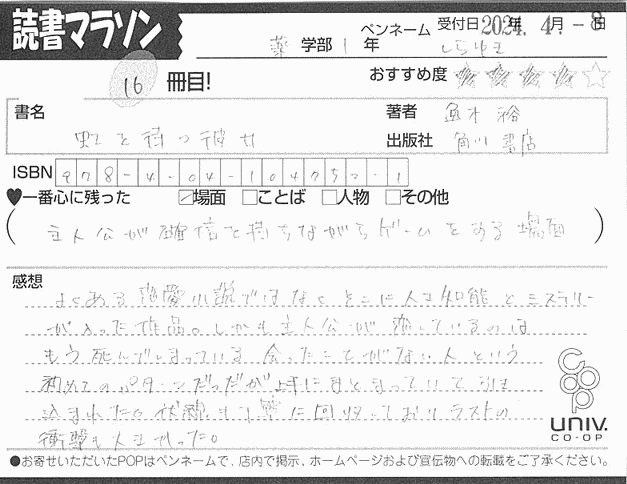 読書マラソン
受付日 2024年 4月 -8日
薬 学部 1 年 ペンネーム しらゆき
16 冊目! おすすめ度 ★★★★☆
書名 虹を待つ彼女 著者 逸木 裕
出版社 角川書店
ISBN 978-4-04-104752-1
♥一番心に残った ☑場面 □ことば □人物 □その他
(主人公が確信を持ちながらゲームをある場面)
感想
よくある恋愛小説ではなくそこに人工知能とミステリー
が入った作品。しかも主人公が恋しているのは
もう死んでしまっている会ったことがない人という
初めてのパターンだったが上手にまとまっていて引き
込まれた。伏線も丁寧に回収しておりラストの
衝撃も大きかった。
coop
UNIV.
CO-OP
●お寄せいただいたPOPはペンネームで、店内で掲示、ホームページおよび宣伝物への転載をご了承ください。